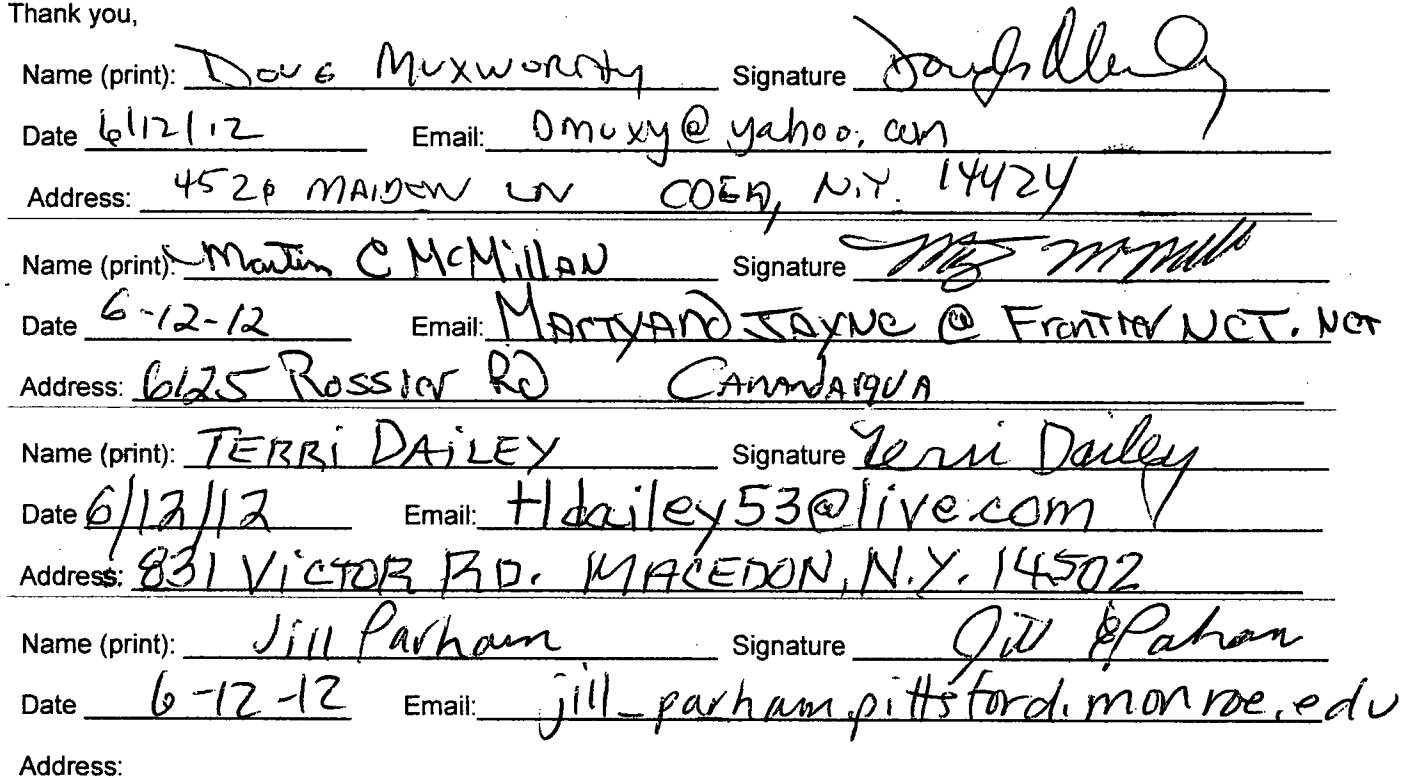 Thank you,
Name (print): Doug Muxworthy Signature
Date 6/12/12 Email: Dmuxy@yahoo.com
Address: 4520 MAIDEN LN CDGA, N.Y. 14424
Name (print): Martin C McMillan Signature
Date 6-12-12 Email: MartyAND JAYNe @ FronTier NeT. NeT
Address: 6125 Rossier Rd CANANDAIGUA
Name (print): TERRi DAiLEY Signature Terri Dailey
Date 6/12/12 Email: tldailey53@live.com
Address: 831 VICTOR RD. MACEDON, N.Y. 14502
Name (print): Jill Parham Signature Jill E Parham
Date 6-12-12 Email: jill_parham.pittsford.monroe.edu
Address: